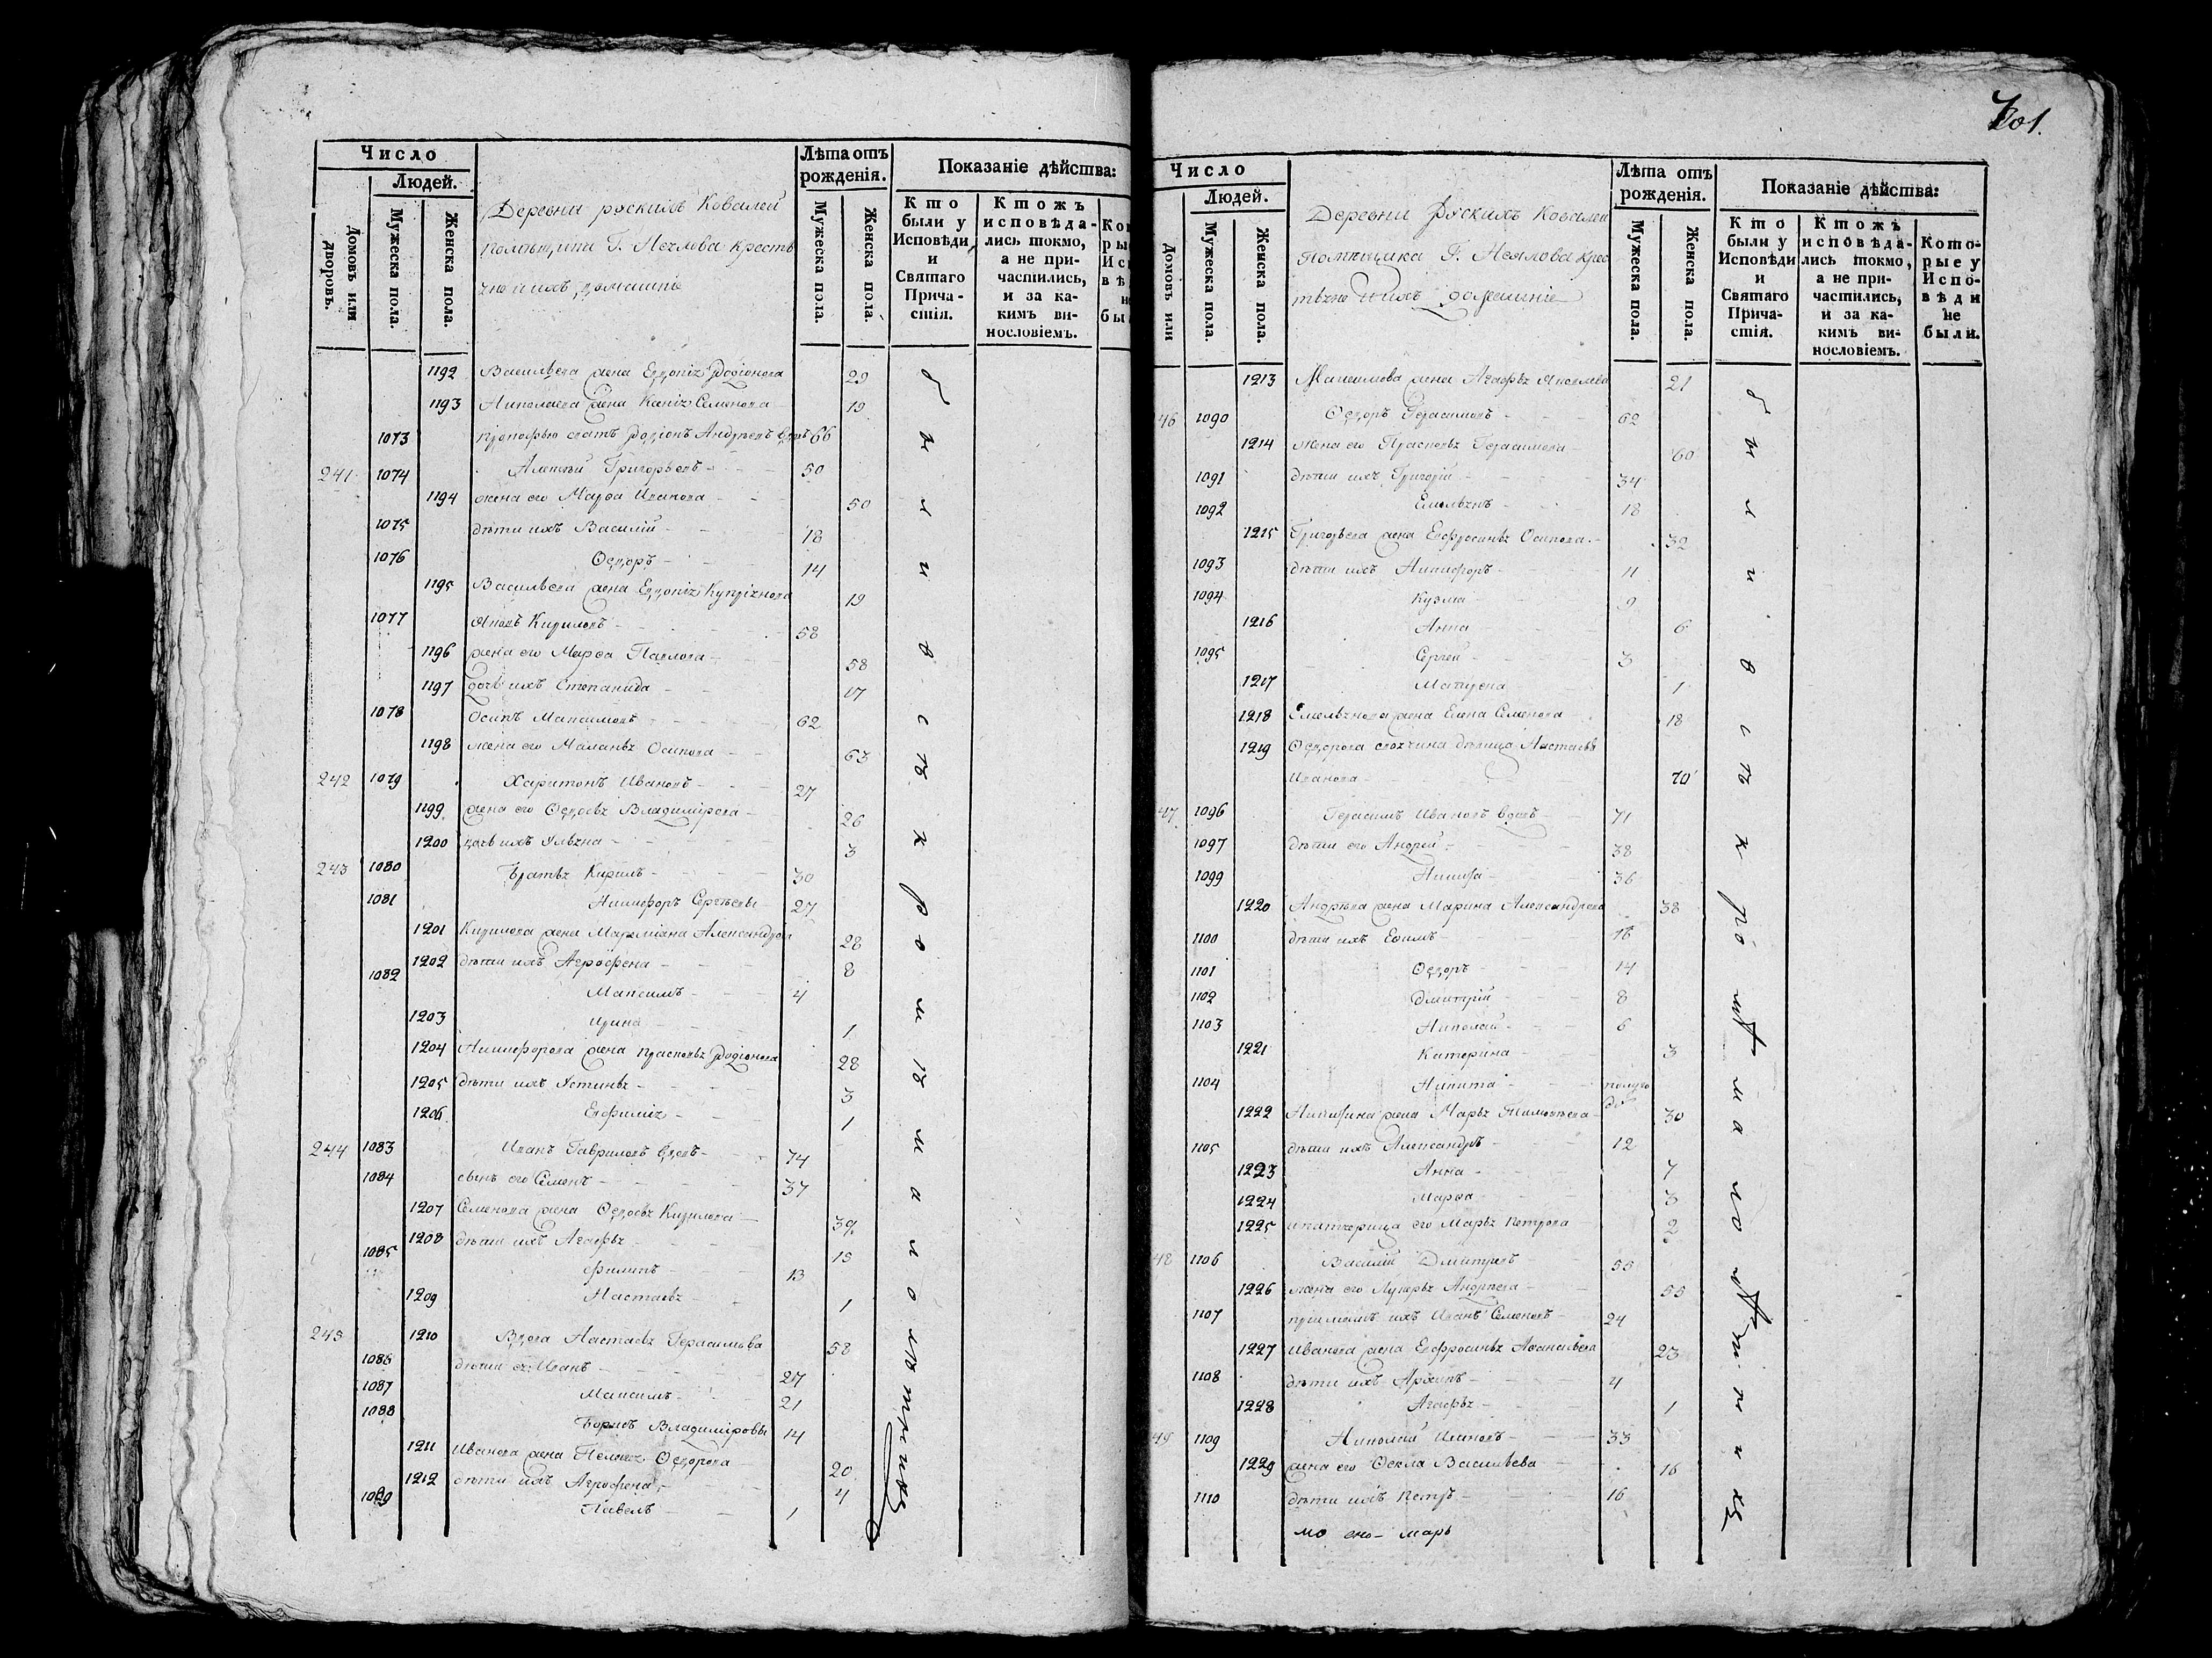 Число
Людей.
Домовъ или дворовъ.
Мужеска пола.
Женска пола.
Деревни рускихъ Ковалей
помѣщика Г. крестья
не и ихъ домашніе
Лѣта отъ рожденія.
Мужеска пола.
Женска пола.
Показаніе дѣйства:
Кто были у Исповѣди и Святаго Прича-стія.
Ктожъ исповѣда-лись токмо, а не при-частились, и за ка-кимъ ви-нословіемъ.
1192 Васильева жена Евдокія Родіонова 29
1193 Николаева жена Ксенія Семенова 19
1073 Родіонъ Андреевъ вдовъ 66
241 1074 Алексѣй Григорьевъ 50
1194 жена его Марѳа Иванова 50
1075 дѣти ихъ Василій 18
1076 Ѳедоръ 14
1195 Васильева жена Евдокія Купріянова 19
1077 Яковъ Кириловъ 58
1196 жена его Марѳа Павлова 58
1197 дочь ихъ Степанида 17
1078 Осипъ Максимовъ 62
1198 жена его Маланья Осипова 63
242 1079 Харитонъ Ивановъ 27
1199 жена его Ѳедосья Владимірова 26
1200 дочь ихъ Ульяна 3
243 1080 Братья Кирилъ 30
1081 Никифоръ Сергѣевы 27
1201 Кирилова жена Маремьяна Александрова 28
1202 дѣти ихъ Агрофена 8
1082 Максимъ 4
1203 Ирина 1
1204 Никифорова жена Прасковья Родіонова 28
1205 дѣти ихъ Устинья 3
1206 Евфимія 1
244 1083 Иванъ Гавриловъ вдовъ 74
1084 сынъ его Семенъ 37
1207 Семенова жена Ѳедосья Кирилова 39
1208 дѣти ихъ Агафья 19
1085 Филипъ 13
1209 Настасья 1
245 1210 Вдова Настасья Герасимова 58
1086 дѣти ея Иванъ 27
1087 Максимъ 21
1088 Борисъ Владиміровы 14
1211 Иванова жена Пелагея Ѳедорова 20
1212 дѣти ихъ Агрофена 4
1089 Павелъ 1
были въ Екромыкалотрицъ
701.
Число
Людей.
Домовъ или
Мужеска пола.
Женска пола.
Деревни Рускихъ Ковалей
помѣщика Г. крес
тьяне и ихъ домашніе
Лѣта отъ рожденія.
Мужеска пола.
Женска пола.
Показаніе дѣйства:
Кто были у Исповѣди и Святаго Прича-стія.
Ктожъ исповѣда-лись токмо, а не при-частились, и за ка-кимъ ви-нословіемъ.
Кото-рые у Испо-вѣди не были.
1213 Максимова жена Агафья Яковлева 21
46 1090 Ѳедоръ Герасимовъ 62
1214 жена его Прасковья Герасимова 60
1091 дѣти ихъ Григорій 34
1092 Емельянъ 18
1215 Григорьева жена Евфросинья Осипова 32
1093 дѣти ихъ Никифоръ 11
1094 Кузма 9
1216 Анна 6
1095 Сергей 3
1217 Матрена 1
1218 Емельянова жена Елена Семенова 18
1219 Ѳедорова дѣвица Настасья
Иванова 70
47 1096 Герасимъ Ивановъ вдовъ 71
1097 дѣти его Андрей 38
1099 Никифа 36
1220 Андрѣева жена Марина Александрова 38
1100 дѣти ихъ Ефимъ 18
1101 Ѳедоръ 14
1102 Дмитрій 8
1103 Николай 6
1221 Катерина 3
1104 Никита полуго
1222 Никифина жена Марья Тимофѣева 30
1105 дѣти ихъ Александръ 12
1223 Анна 7
1224 Марѳа 3
1225 его Марья Петрова 2
48 1106 Василій Дмитріевъ 55
1226 жена его Лукерья Андрѣева 55
1107 ихъ Иванъ Семеновъ 24
1227 Иванова жена Евфросинья Аѳанасьева 23
1108 дѣти ихъ Архипъ 4
1228 Агафья 1
49 1109 Николай Ивановъ 33
1229 жена его Ѳекла Васильева 16
1110 дѣти ихъ Петръ 16